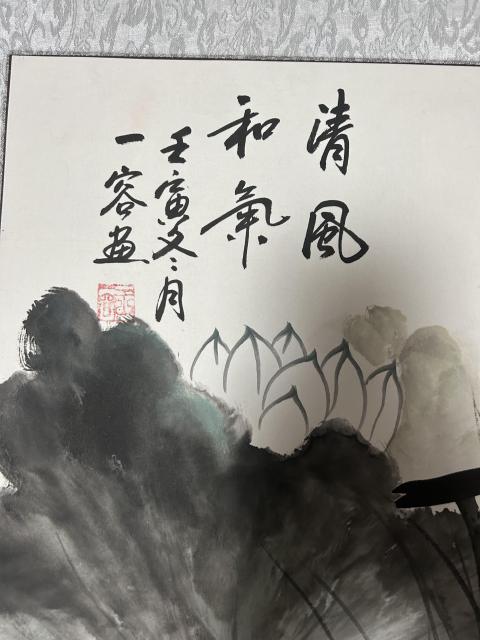 清風
和氣
壬寅冬月
一容畫